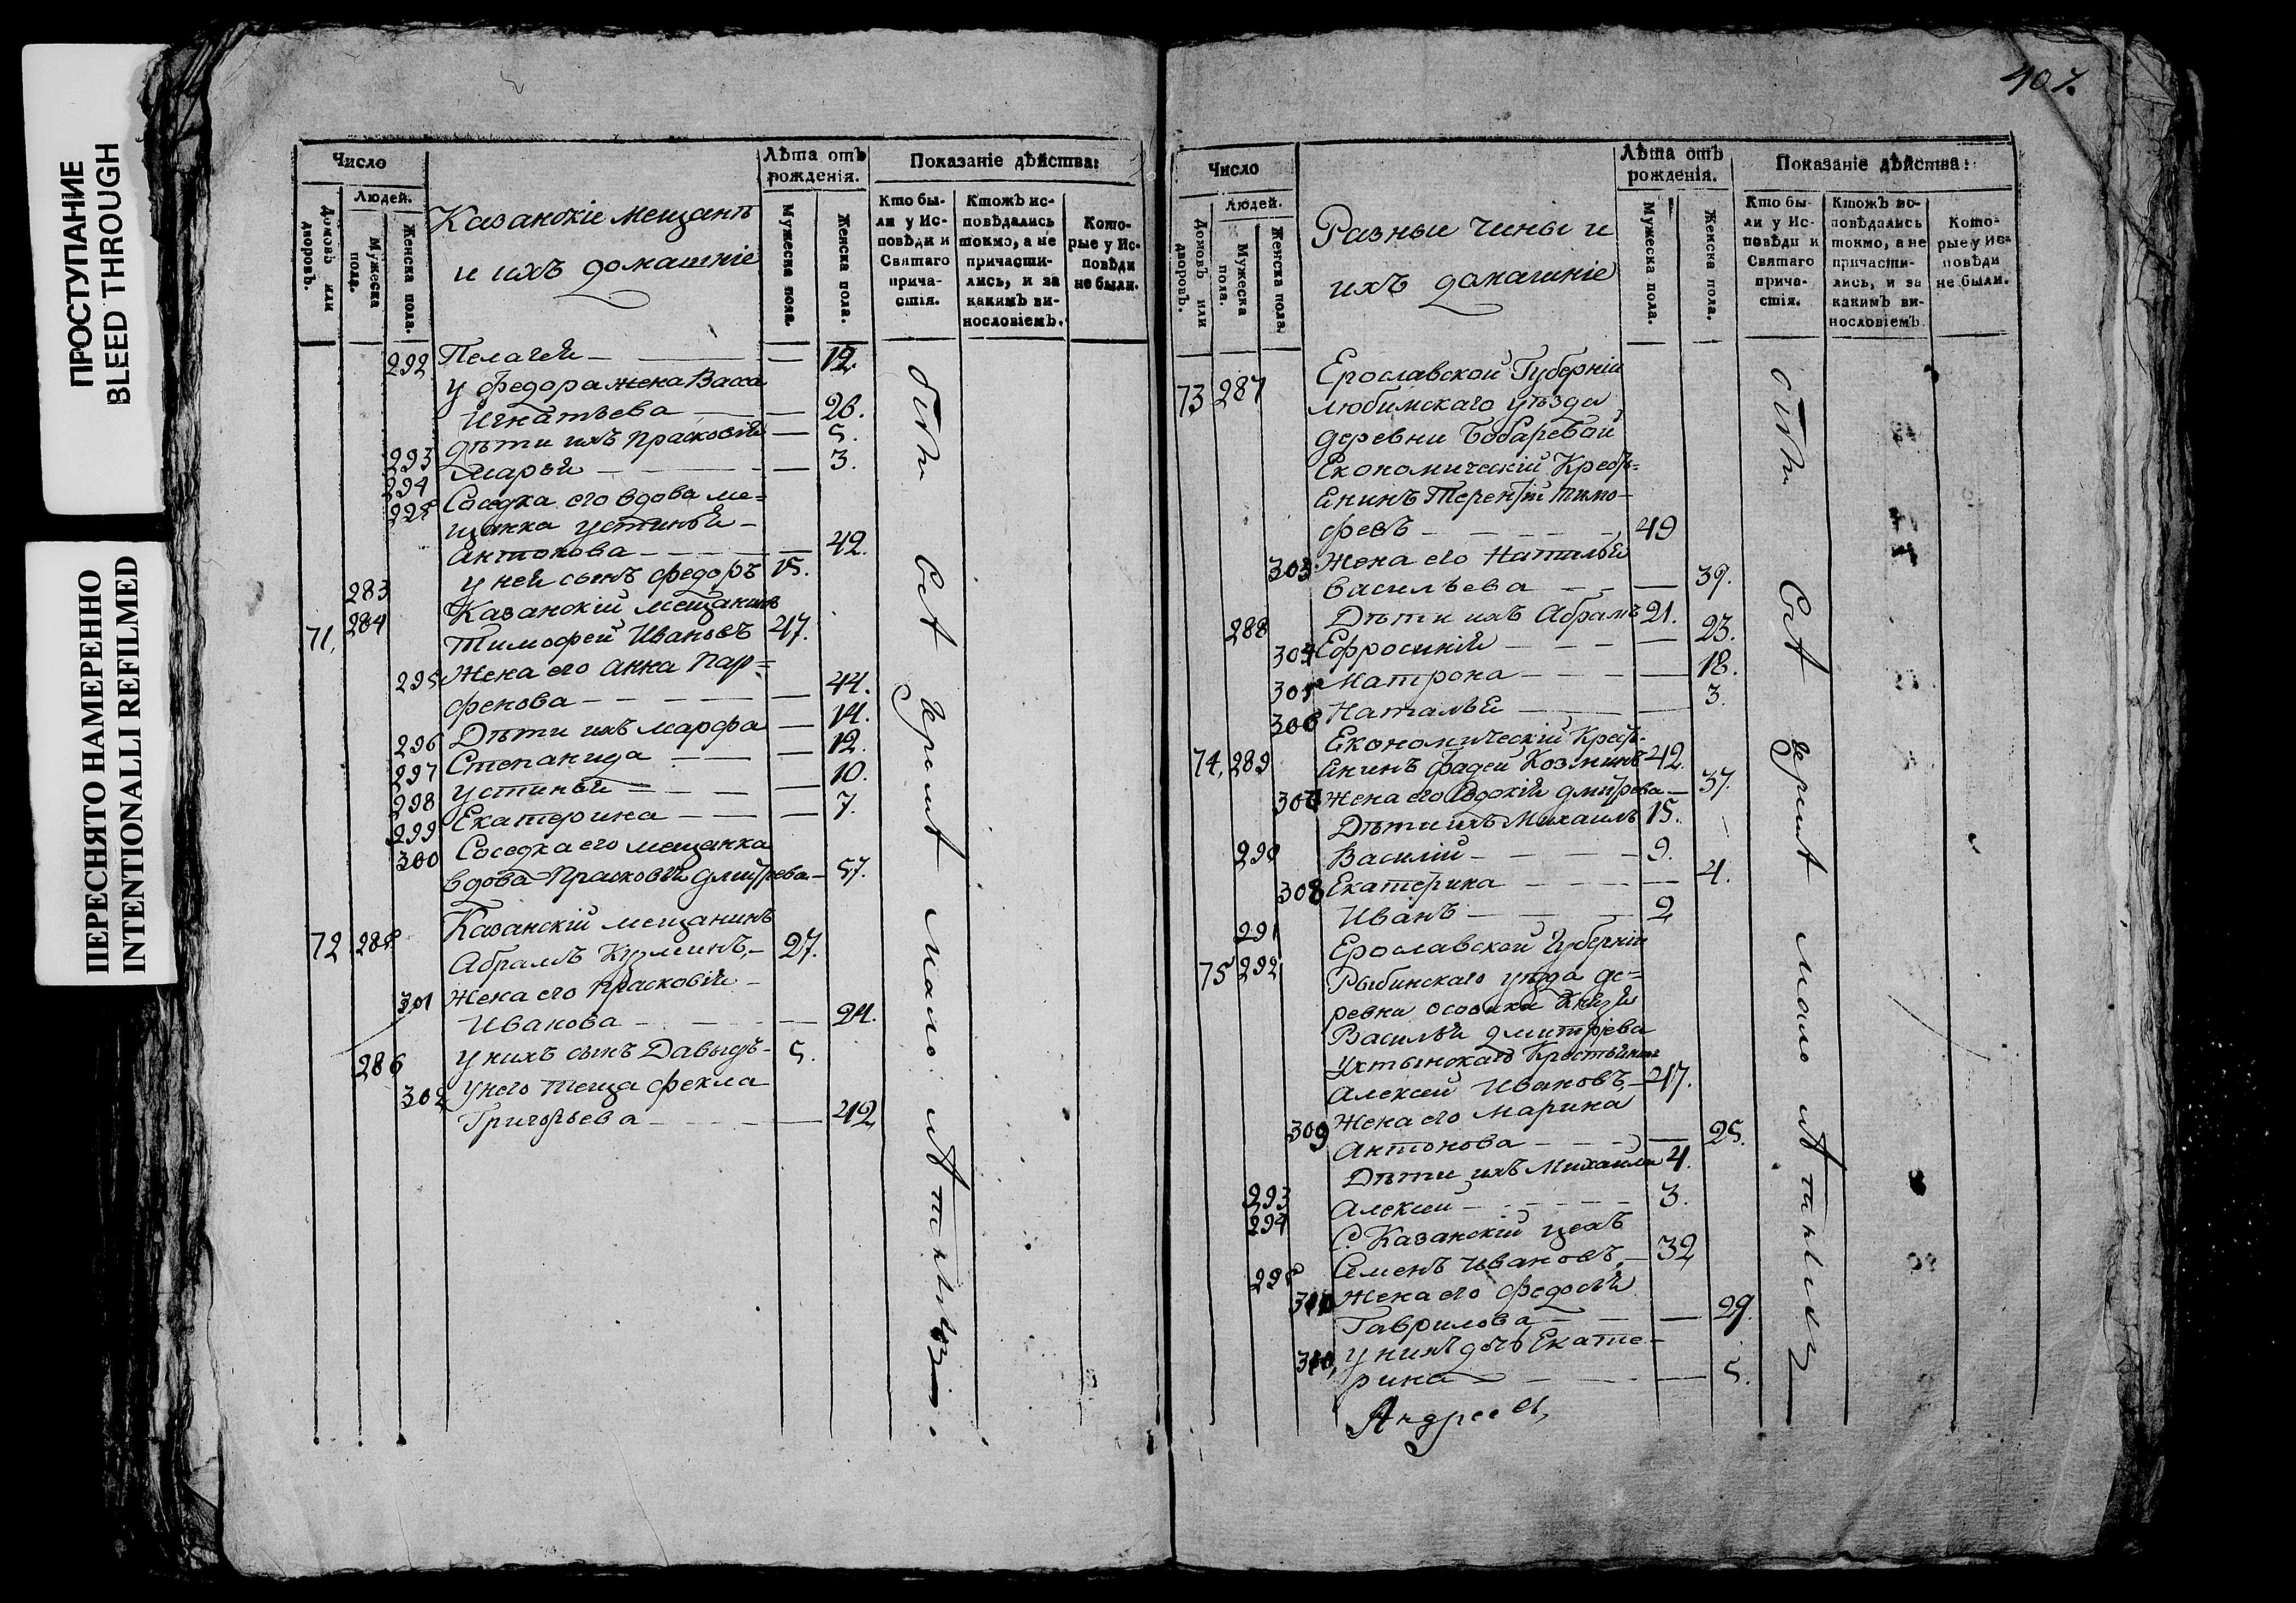 ПРОСТУПАНИЕ
BLEED THROUGH
ПЕРЕСНЯТО НАМЕРЕННО
INTENTIONALLI REFILMED
Число
Людей.
Домовъ или дворовъ.
Мужеска пола.
Женска пола.
Казанскіе мещанъ
и ихъ домашніе
Лѣта отъ рожденія.
Мужеска пола.
Женска пола.
Показаніе дѣйства:
Кто бы-
ли у Ис-
повѣди и
Святаго
прича-
стія.
Ктожъ ис-
повѣдались
токмо, а не
причасти-
лись, и за
какимъ ви-
нословіемъ.
Кото-
рые у Ис-
повѣди
не были.
292 Пелагея — — 12.
у Федора жена Васса
Игнатьева — — 26.
293 дѣти ихъ Прасковія — 5.
294 Марья — — 3.
Соседка его вдова ме=
щанка устинья —
антонова — — 42.
283 у ней сынъ Федоръ 15.
284 Казанскій мещанинъ
71, Тимофей Ивановъ 47.
295 Жена его анна Пар=
фенова — — 44.
296 Дѣти ихъ марфа — 14.
297 Степанида — — 12.
298 устинья — — 10.
299 Екатерина — — 7.
300 Соседка его мещанка
вдова Прасковія дмитрева — 57.
Казанскій мещанинъ
72 285 Абрамъ Кузминъ, — 27.
301 Жена его Прасковія —
Иванова — — 24.
286 у нихъ сынъ Давыдъ — 5.
302 у него теща фекла
Григорьева — — 42
407.
Число
Людей.
Домовъ или дворовъ.
Мужеска пола.
Женска пола.
Разные чины и
ихъ домашніе
Лѣта отъ рожденія.
Мужеска пола.
Женска пола.
Показаніе дѣйства:
Кто бы-
ли у Ис-
повѣди и
Святаго
прича-
стія.
Ктожъ ис-
повѣдались
токмо, а не
причасти-
лись, и за
какимъ ви-
нословіемъ.
Кото-
рые у Ис-
повѣди
не были.
73 287 Ерославской Губерніи
любимскаго уѣзда
деревни
Економическій Крест-
янинъ Терентій тимо-
февъ — — 49
303 Жена его Наталья
васильева — — 39.
288 Дѣти ихъ Абрамъ 21.
304 Ефросинія — — 23.
305 Матрона — — 18.
306 Наталья — — 3.
Економическій Крест-
74, 289 янинъ Фадей Козминъ 42.
307 Жена его Евдокія дмитрева — 37.
Дѣти ихъ Михаилъ 15.
290 Василій — — 9.
308 Екатерина — — 4.
291 Иванъ — — 2
75 292 Ерославской Губерніи
Рыбинскаго уѣзда де=
ревни Князя
Василья дмитріева
Ухтынскаго Крестьянинъ
алексей Ивановъ, — 47.
309 Жена его марина
антонова — — 25.
293 Дѣти ихъ Михаила 4.
294 алексей — — 3.
Казанскій цехъ
295 Семенъ ивановъ, — 32
310 Жена его Федосья
Гаврилова — — 29.
310, у нихъ дочь Екате-
рина — — 5.
Андрей